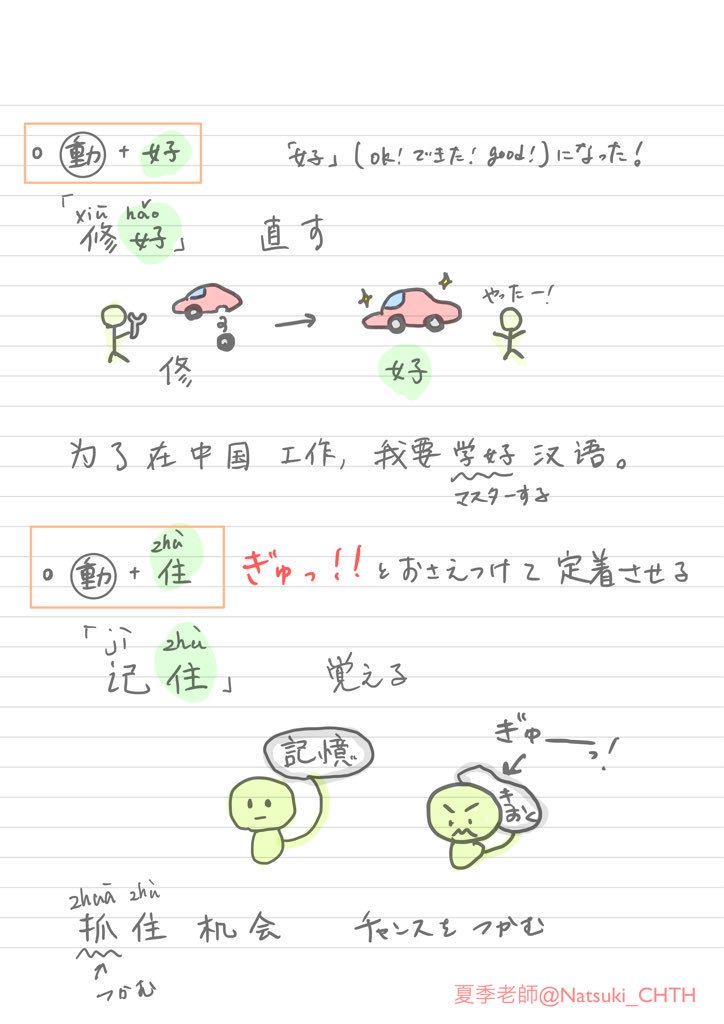 ○ 動 + 好 「好」(ok! できた! good!)になった!
xiū hǎo
「修好」 直す
やったー!
修 好
为了在中国工作, 我要学好汉语。
マスターする
zhù
○ 動 + 住 ぎゅっ!!とおさえつけて定着させる
jì zhù
「记住」 覚える
ぎゅーっ!
記憶
きおく
zhuā zhù
抓住机会 チャンスをつかむ
つかむ
夏季老師@Natsuki_CHTH